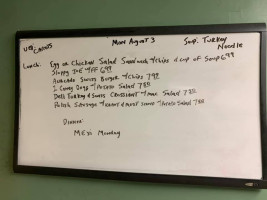 Mon August 3
Soup. Turkey Noodle
Lunch: Egg or Chicken Salad Sandwich + chips & cup of Soup 6.99
Sloppy Joe + FF 6.99
Avocado Swiss Burger + chips 7.99
2 Coney Dogs + Potato Salad 7.99
Deli Turkey & Swiss Croissant + Mac Salad 7.99
Polish Sausage + Potato Salad 7.99
Dinner:
Mexi Monday